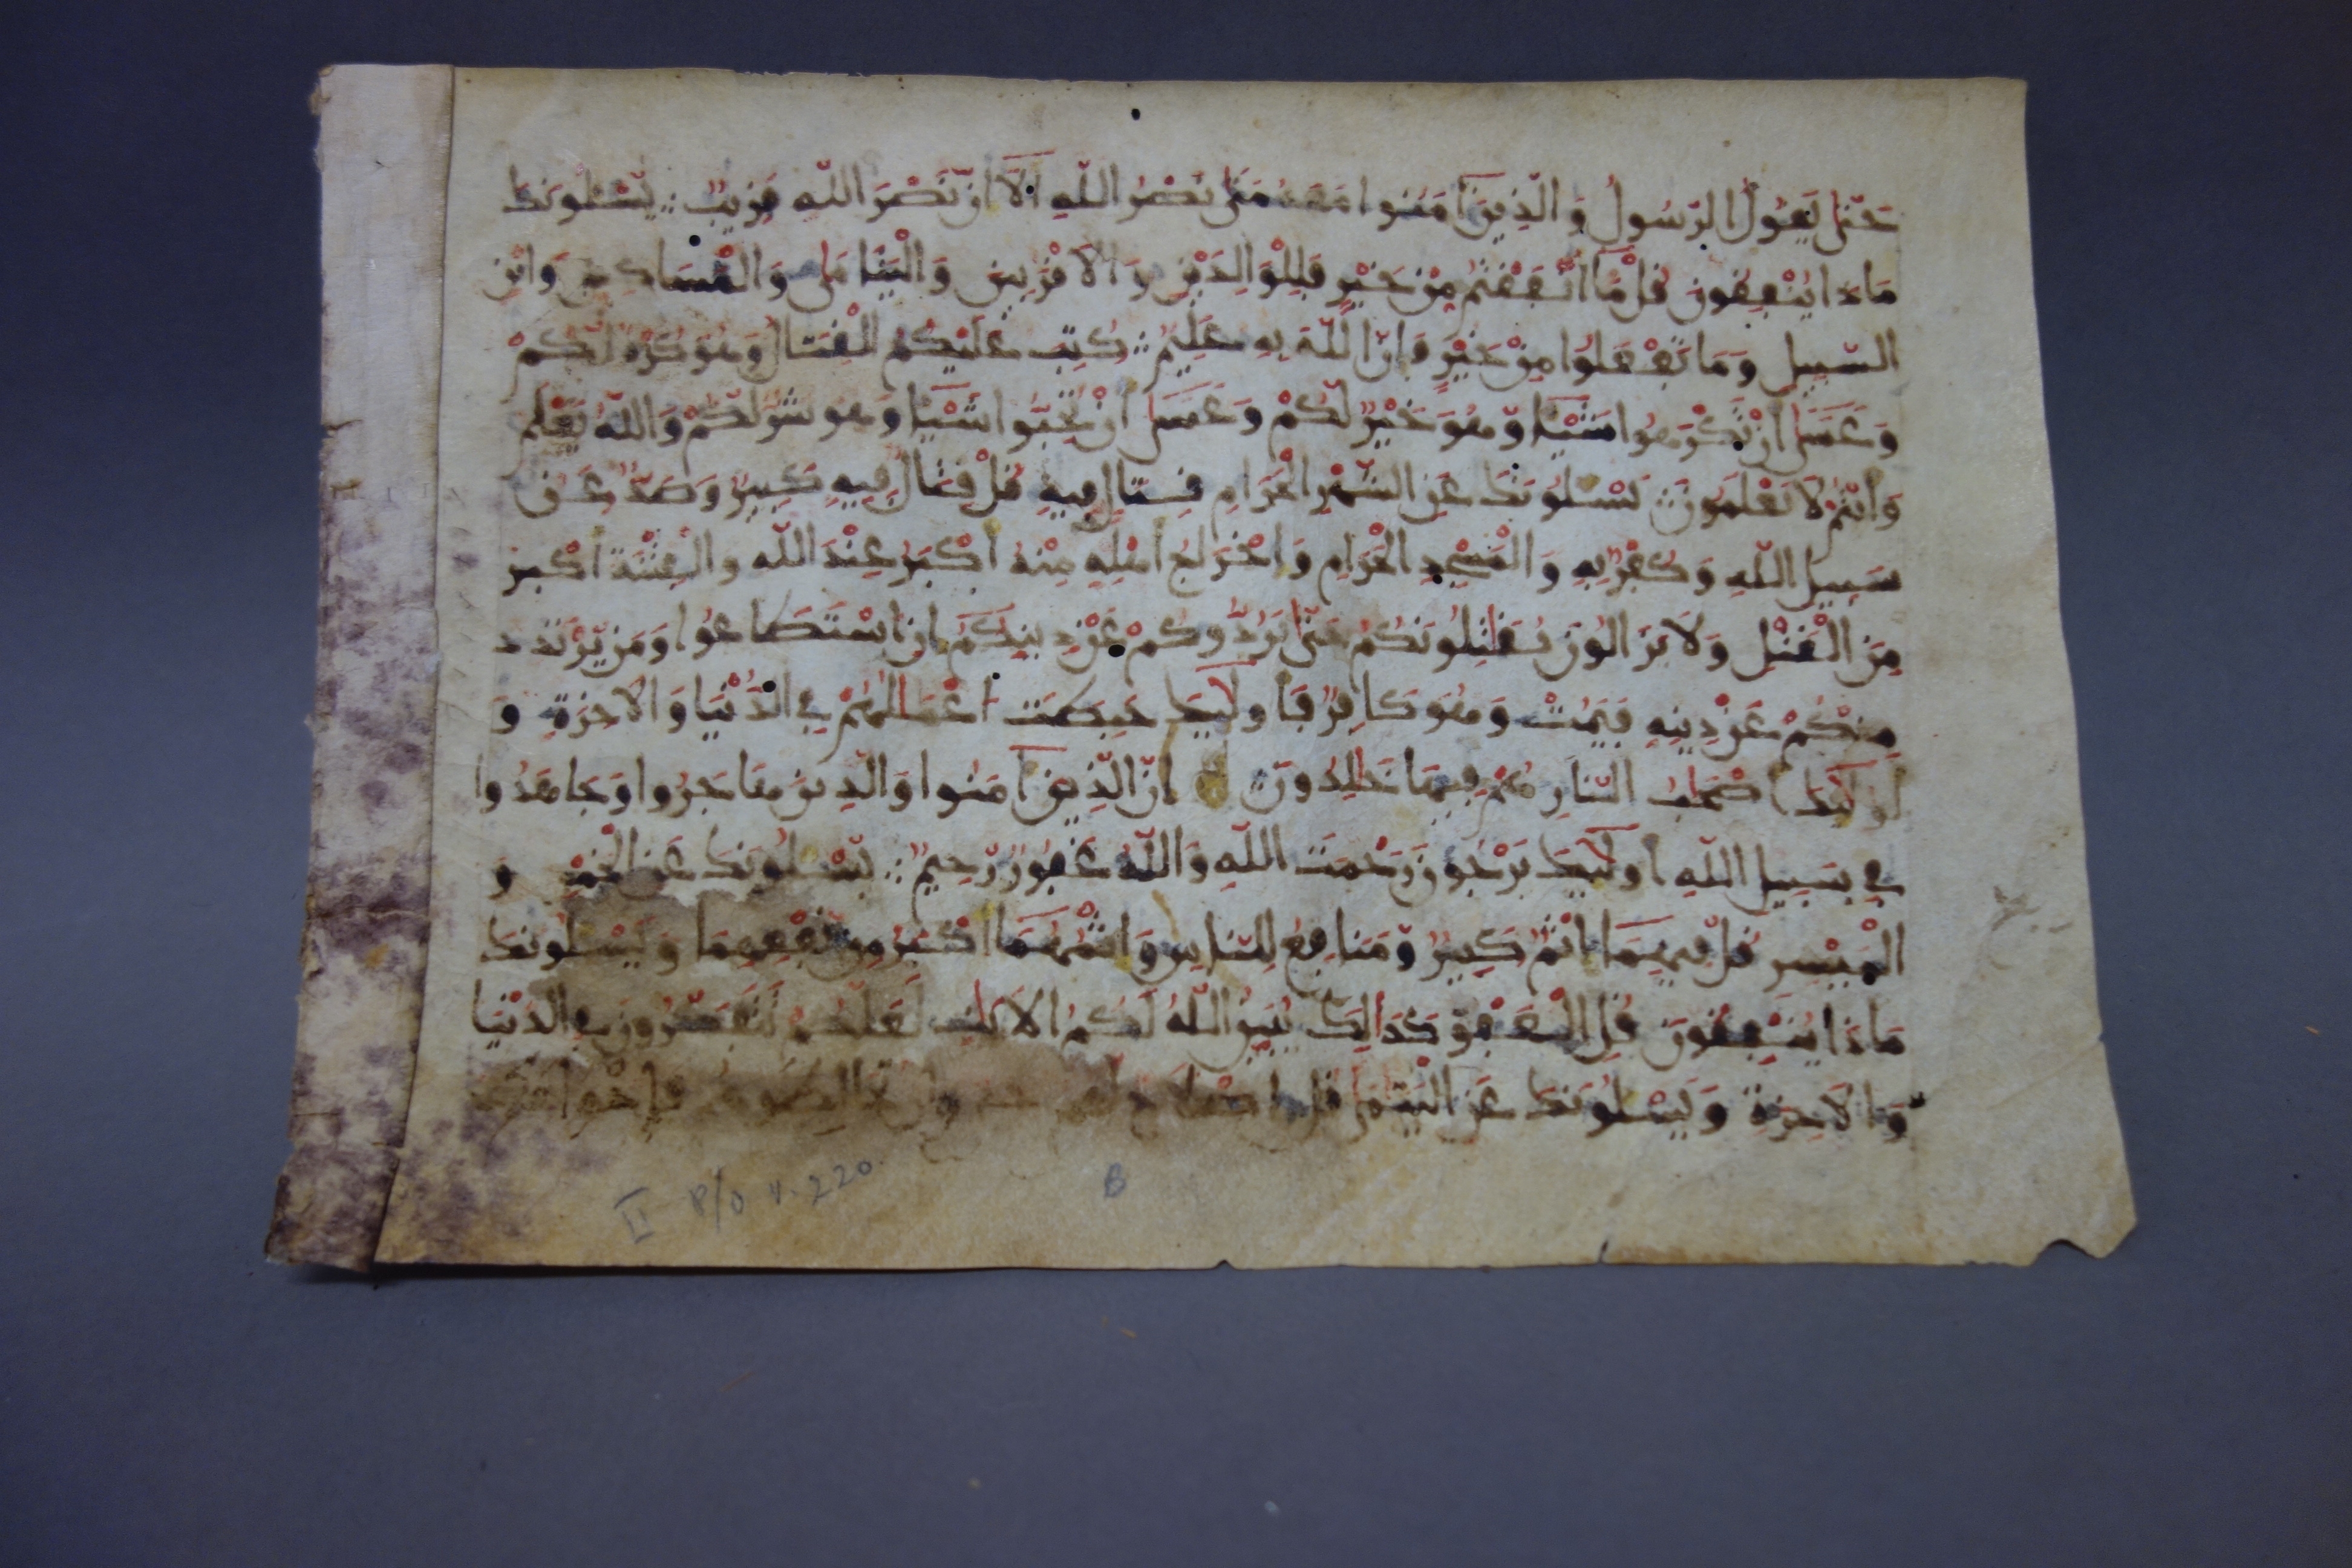 حَتَّى يَقُولُ الرَّسُولُ وَالَّذِينَ آمَنُوا مَعَهُ مَتَى نَصْرُ اللَّهِ أَلَا إِنَّ نَصْرَ اللَّهِ قَرِيبٌ يَسْـَٔلُونَكَ
مَاذَا يُنْفِقُونَ قُلْ مَا أَنْفَقْتُمْ مِنْ خَيْرٍ فَلِلْوَالِدَيْنِ وَالْأَقْرَبِينَ وَالْيَتَامَى وَالْمَسَاكِينِ وَابْنِ
السَّبِيلِ وَمَا تَفْعَلُوا مِنْ خَيْرٍ فَإِنَّ اللَّهَ بِهِ عَلِيمٌ كُتِبَ عَلَيْكُمُ الْقِتَالُ وَهُوَ كُرْهٌ لَّكُمْ
وَعَسَى أَنْ تَكْرَهُوا شَيْئًا وَّهُوَ خَيْرٌ لَّكُمْ وَعَسَى أَنْ تُحِبُّوا شَيْئًا وَهُوَ شَرٌّ لَّكُمْ وَاللَّهُ يَعْلَمُ
وَأَنْتُمْ لَا تَعْلَمُونَ يَسْـَٔلُونَكَ عَنِ الشَّهْرِ الْحَرَامِ قِتَالٍ فِيهِ قُلْ قِتَالٌ فِيهِ كَبِيرٌ وَصَدٌّ عَن
سَبِيلِ اللَّهِ وَكُفْرٌ بِهِ وَالْمَسْجِدِ الْحَرَامِ وَإِخْرَاجُ أَهْلِهِ مِنْهُ أَكْبَرُ عِنْدَ اللَّهِ وَالْفِتْنَةُ أَكْبَرُ
مِنَ الْقَتْلِ وَلَا يَزَالُونَ يُقَٰتِلُونَكُمْ حَتَّى يَرُدُّوكُمْ عَنْ دِينِكُمْ إِنِ اسْتَطَاعُوا وَمَنْ يَّرْتَدِدْ
مِنْكُمْ عَنْ دِينِهِ فَيَمُتْ وَهُوَ كَافِرٌ فَأُولَٰئِكَ حَبِطَتْ أَعْمَالُهُمْ فِي الدُّنْيَا وَالْآخِرَةِ وَ
أُولَٰئِكَ أَصْحَٰبُ النَّارِ هُمْ فِيهَا خَٰلِدُونَ إِنَّ الَّذِينَ آمَنُوا وَالَّذِينَ هَاجَرُوا وَجَاهَدُوا
فِي سَبِيلِ اللَّهِ أُولَٰئِكَ يَرْجُونَ رَحْمَتَ اللَّهِ وَاللَّهُ غَفُورٌ رَّحِيمٌ يَسْـَٔلُونَكَ عَنِ الْخَمْرِ وَ
الْمَيْسِرِ قُلْ فِيهِمَا إِثْمٌ كَبِيرٌ وَّمَنَافِعُ لِلنَّاسِ وَإِثْمُهُمَا أَكْبَرُ مِنْ نَفْعِهِمَا وَيَسْـَٔلُونَكَ
مَاذَا يُنْفِقُونَ قُلِ الْعَفْوَ كَذَٰلِكَ يُبَيِّنُ اللَّهُ لَكُمُ الْآيَٰتِ لَعَلَّكُمْ تَتَفَكَّرُونَ فِي الدُّنْيَا
وَالْآخِرَةِ وَيَسْـَٔلُونَكَ عَنِ الْيَتَٰمَى قُلْ إِصْلَاحٌ لَهُمْ خَيْرٌ وَإِنْ تُخَالِطُوهُمْ فَإِخْوَانُكُمْ
II P/O v. 220. B